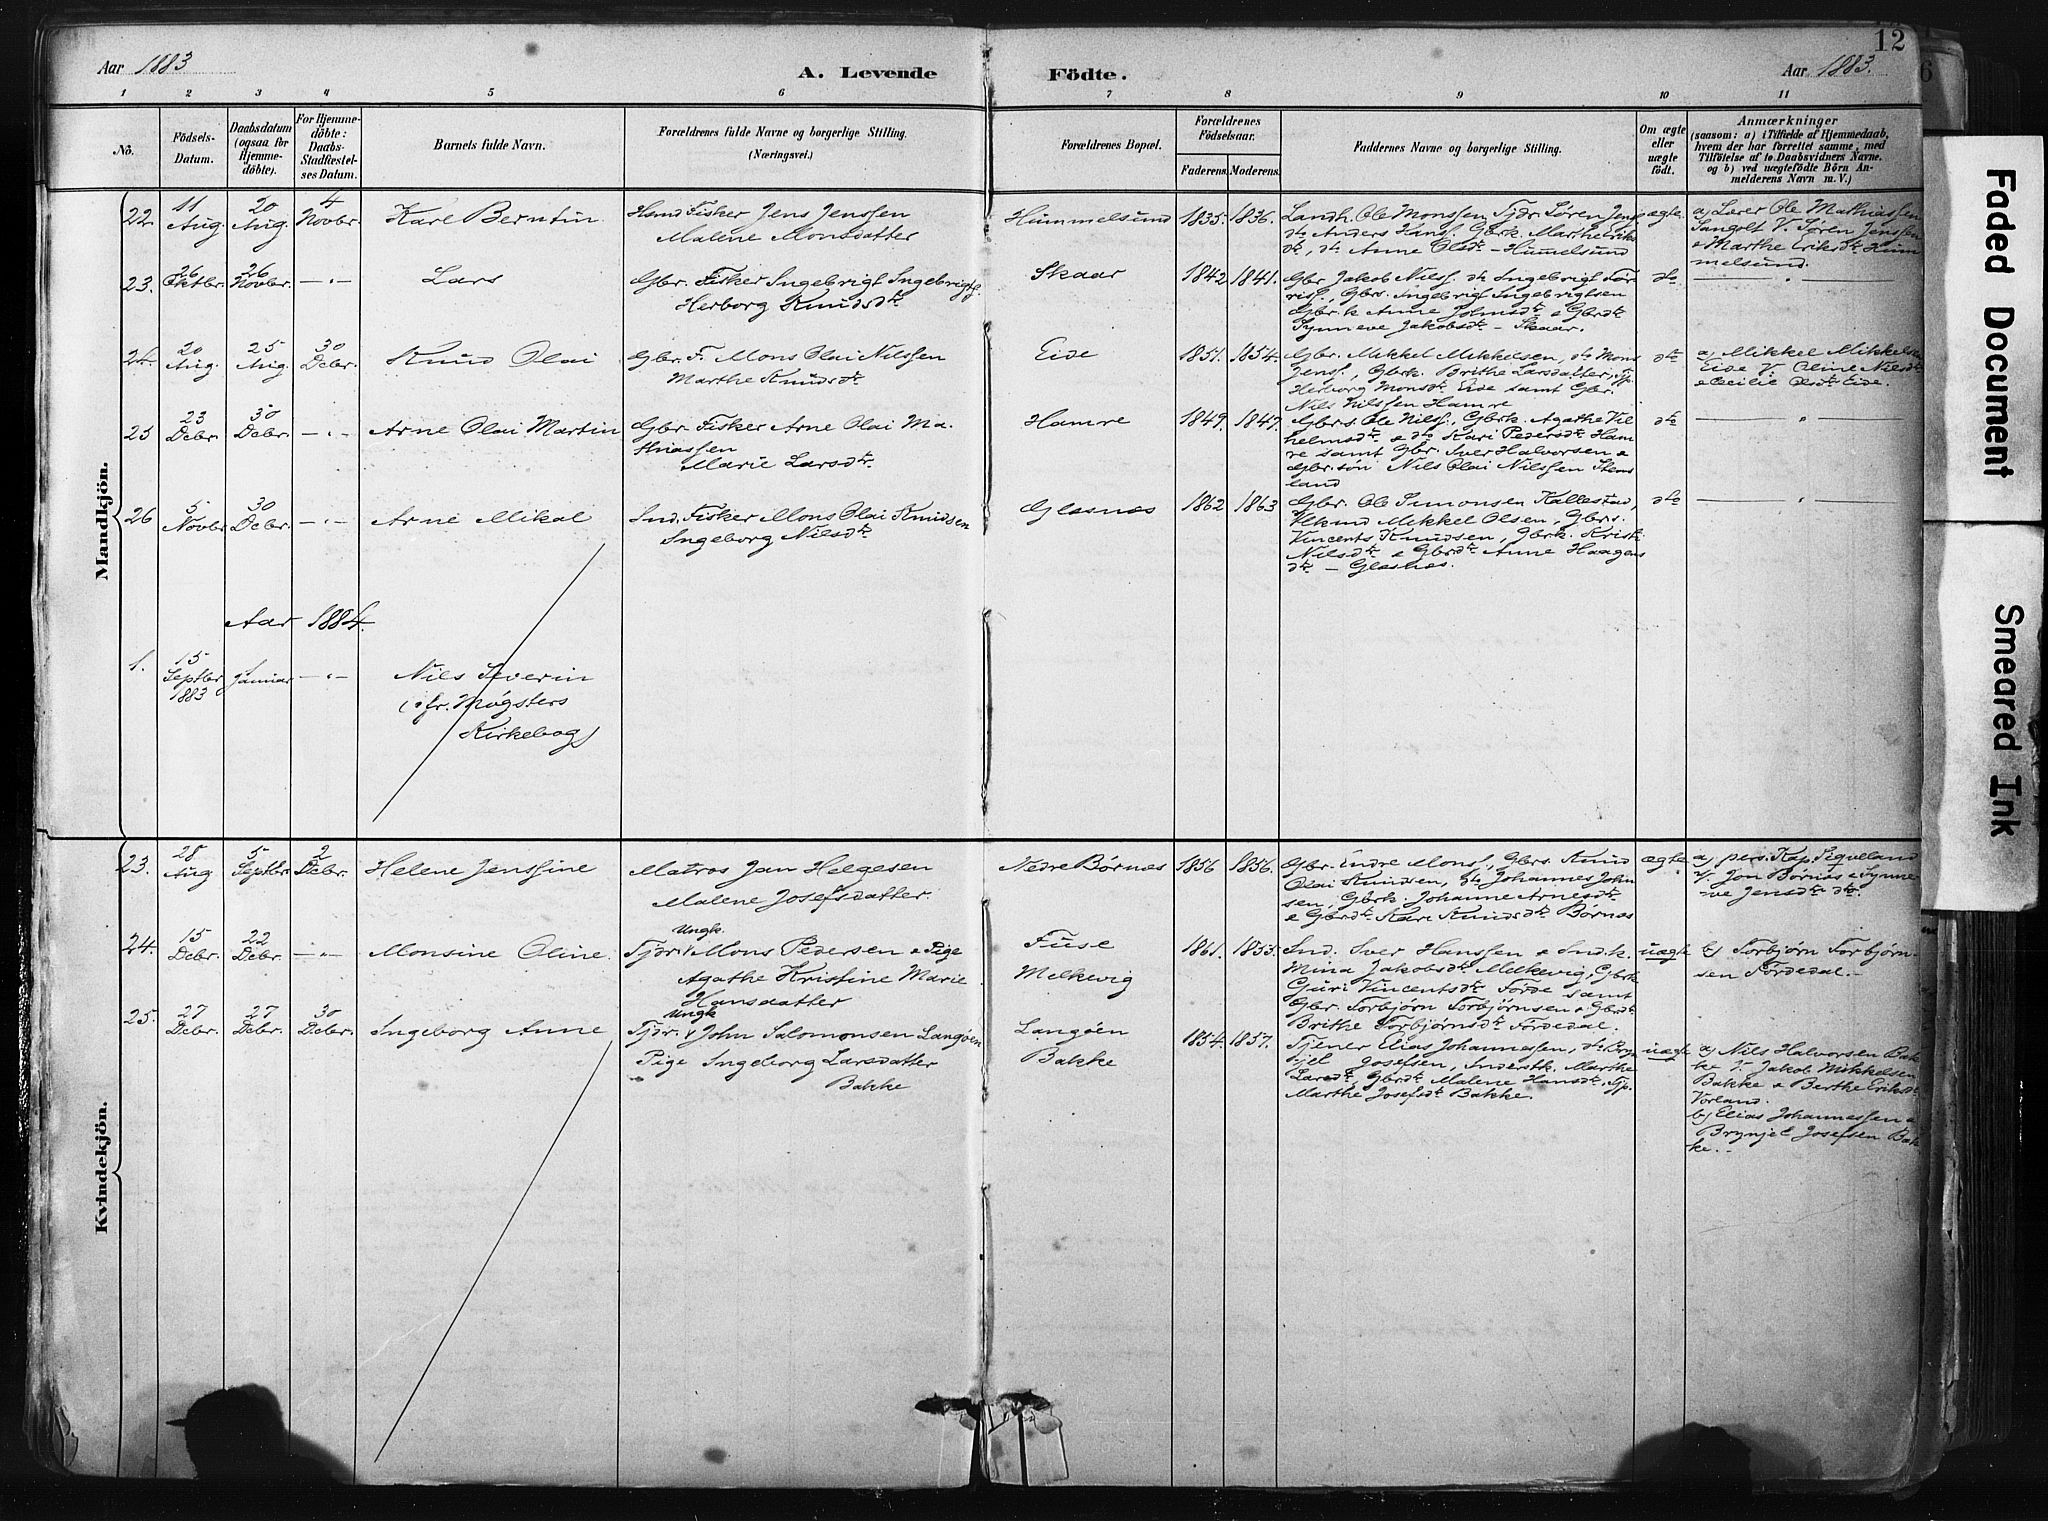 12
Aar 1883
A. Levende Födte.
Aar 1883.
1 2 3 4 5 6 7 8 9 10 11
No.
Födsels-Datum.
Daabsdatum (ogsaa for Hjemmedöbte).
For Hjemmedöbte: Daabs-Stadfæstelses Datum.
Barnets fulde Navn.
Forældrenes fulde Navne og borgerlige Stilling.
(Næringsvei.)
Forældrenes Bopæl.
Forældrenes Födselsaar.
Faderens. Moderens.
Faddernes Navne og borgerlige Stilling.
Om ægte eller uægte födt.
Anmærkninger
(saasom: a) i Tilfælde af Hjemmedaab,
hvem der har forrettet samme, med
Tilföielse af to Daabsvidners Navne.
og b) ved uægtefödte Börn An-
melderens Navn m. V.)
Mandkjön.
22. 11 Aug. 20 Aug. 4 Novbr. Karl Berntin
Fisker Jens Jenssen
Malene Monsdatter
Hummelsund 1835. 1836.
Landh. Ole Monssen, Tjdr. Søren Jens
dto Anders Hans, Gbrk. Marthe Eriks
dtr, dto Anne Olsdtr – Hummelsund
ægte
a) Lærer Ole Mathiassen
Sangolt V. Søren Jenssen
& Marthe Eriksdtr Hum
melsund.
23. 26 Oktbr. 26 Novbr. —„— Lars
Gbr. Fisker Ingebrigt Ingebrigts.
Herborg Knudsdtr.
Skaar 1842 1841.
Gbr Jakob Nilss. dto Ingebrigt Tør
riss., Gbrs. Ingebrigt Ingebrigtsen
Gbr.k Anne Johnsdtr & Gbrdtr
Synneve Jakobsdtr – Skaar.
dto —„—
24. 20 Aug. 25 Aug. 30 Debr. Knud Olai
Gbr. F. Mons Olai Nilssen
Marthe Knudsdtr
Eide 1851. 1854.
Gbr. Mikkel Mikkelsen, dto Mons
Jenss., Gbrk. Brithe Larsdatter, Tjp.
Herborg Monsdtr Eide samt Gbr.
Nils Nilssen Hamre
dto
a) Mikkel Mikkelsen
Eide V Oline Nilsdtr
& Cecilie Olsdtr Eide.
25 23 Debr. 30 Debr. —„— Arne Olai Martin
Gbr. Fisker Arne Olai Ma-
thiassen
Marie Larsdtr.
Hamre 1849. 1847.
Gbrs. Ole Nilss., Gbrk. Agathe Vil
helmsdtr & dto Kari Pedersdtr Ham
re samt Gbr. Iver Halvorsen &
Gbr.søn Nils Olai Nilssen Stens
land
dto —„—
26 5 Novbr. 30 Debr. —„— Arne Mikal
Ind. Fisker Mons Olai Knudsen
Ingeborg Nilsdtr.
Glesnæs 1862 1863
Gbr. Ole Simonsen Kallestad,
Ulkmd Mikkel Olsen, Gbrs.
Vincents Knudsen, Gbrk. Kristi
Nilsdtr & Gbrdtr Anne Haagens
dtr – Glesnæs.
dto —„—
Aar 1884.
1. 15 Septbr 1883 Januar —„— Nils Severin
(cfr. Møgsters
Kirkebog)
Kvindekjön.
23. 28 Aug 5 Septbr. 2 Debr. Helene Jenssine
Matros Jan Helgesen
Malene Josefsdatter.
Nedre Børnæs 1856 1856.
Gbr. Endre Monss., Gbrs. Knud
Olai Knudsen, dto Johannes John
sen, Gbrk. Johanne Arnesdtr
& Gbrdtr Kari Knudsdtr Børnæs
ægte
a) pers. Kap. Siqveland
V. Jon Børnæs & Synne
ve Jensdtr dto.
24. 15 Debr. 22 Debr. —„— Monsine Oline.
Ungk.
Tjdr. v Mons Pedersen & Pige
Agathe Kristine Marie
Hansdatter
Fuse
Melkevig
1861. 1853.
Ind. Iver Hanssen & Ind.k.
Mina Jakobsdtr Melkevig, Gbrk
Guri Vincentsdtr Førde samt
Gbr. Torbjørn Torbjørnsen & Gbrdtr
Brithe Torbjørnsdtr Førdedal.
uægte
b) Torbjørn Torbjørn-
sen Førdedal.-
25. 27 Debr. 27 Debr. 30 Debr. Ingeborg Anne
Ungk
Tjdr. v John Salomonsen Langøen
Pige Ingeborg Larsdatter
Bakke
Langøen
Bakke
1854. 1857.
Tjener Elias Johannessen, dto Bryn
jel Josefsen, Inderstk. Marthe
Larsdtr, Gbrdtr Malene Hansdtr, Tjp.
Marthe Josefsdtr Bakke.
uægte
a) Nils Halvorsen Bak
ke V. Jakob Mikkelsen
Bakke & Berthe Eriksdtr
Vorland.
b) Elias Johannessen &
Brynjel Josefsen Bak
ke.-
Faded Document
Smeared Ink
6